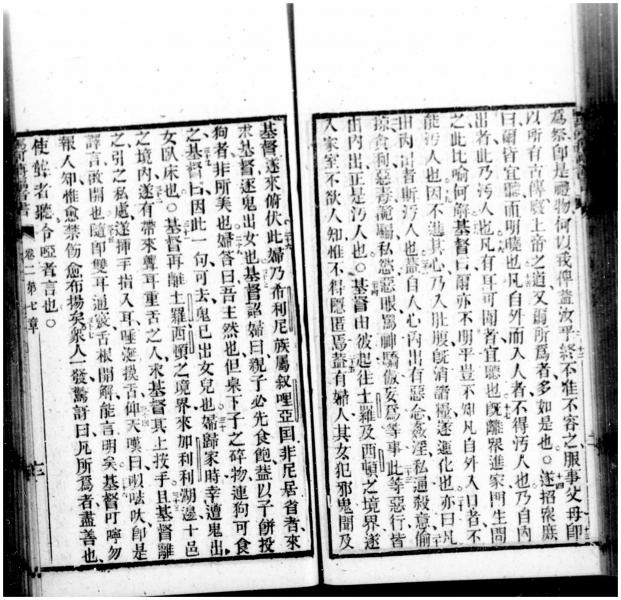 爲祭卽是禮物何以我俾益汝乎終不准不容之服事父母卽
以所有古傳褻上帝之道又爾所爲者多如是也○遂招衆庶
曰爾皆宜聽而明曉也凡自外而入人者不得汚人也乃自內
出者此乃汚人也凡有耳可聞者宜聽也旣離衆進家門生問
之此比喻何解基督曰爾亦不明乎豈不知凡自外入口者不
能汚人也因不進其心乃入肚腹旣消諸糧遂遷化也亦曰凡
由內出者斯汚人也蓋自人心內出有惡念姦淫私通殺意偷
掠貪利惡毒詭騙私怨惡眼罵神驕傲妄爲等事此等惡行皆
由內出正是汚人也○基督由彼起往土羅及西頓之境界遂
入人家室不欲人知惟不得隱匿焉蓋有婦人其女犯邪鬼聞及
基督遂來俯伏此婦乃希利尼族屬叙哩亞国非尼居省者來
求基督逐鬼出女也基督詔婦曰親子必先食飽蓋以子餅投
狗者非所美也婦答曰吾主然也但桌下子之碎物連狗可食
之基督曰因此一句可去鬼已出女兒也婦歸家時幸遭鬼出
女臥床也○基督再離土羅西頓之境界來加利利湖邊十邑
之境內遂有帶來聾耳重舌之人求基督其上按手且基督離
之引之私處遂揷手指入耳唾涎捫舌仰天嘆曰 卽是
譯言啟開也隨卽雙耳通竅舌根開解能言明矣基督叮嚀勿
報人知惟愈禁傷愈布揚矣衆人一發驚訝曰凡所爲者盡善也
使聾者聽令啞者言也○
卷二 第七章